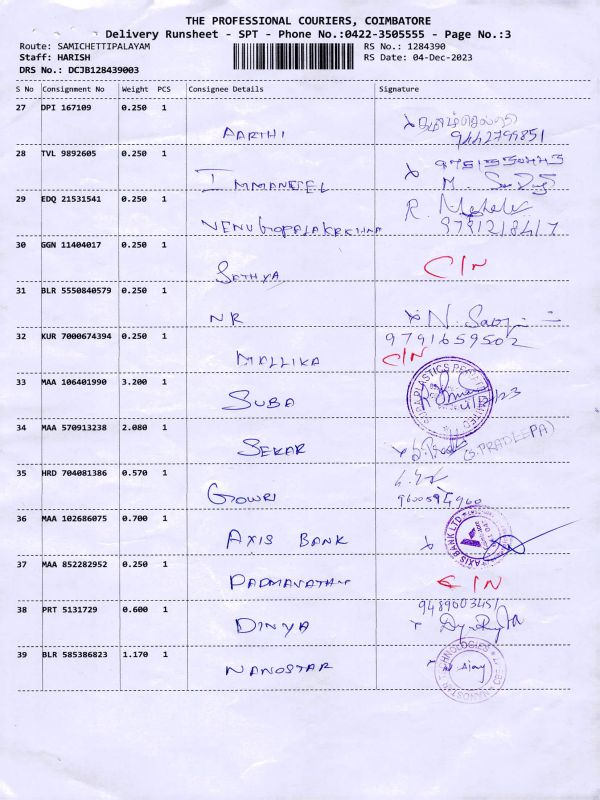 THE PROFESSIONAL COURIERS, COIMBATORE
Delivery Runsheet - SPT - Phone No.:0422-3505555 - Page No.:3
Route: SAMICHETTIPALAYAM RS No.: 1284390
Staff: HARISH RS Date: 04-Dec-2023
DRS No.: DCJB128439003
S No Consignment No Weight PCS Consignee Details Signature
27 DPI 167109 0.250 1
AARTHI 9442799851
28 TVL 9892605 0.250 1
IMMANUEL M.
29 EDQ 21531541 0.250 1 R.
VENUGOPALAKRISHNA
30 GGN 11404017 0.250 1
SATHYA C/N
31 BLR 5550840579 0.250 1
NR N.
32 KUR 7000674394 0.250 1 9791659502
MALLIKA C/N
33 MAA 106401990 3.200 1
SUBA
34 MAA 570913238 2.080 1
SEKAR (S.PRADEEPA)
35 HRD 704081386 0.570 1
GOWRI
36 MAA 102686075 0.700 1
AXIS BANK AXIS BANK LTD
37 MAA 852282952 0.250 1
PADMAVATHY C/N
38 PRT 5131729 0.600 1 9489603451
DIVYA
39 BLR 585386823 1.170 1
NANOSTAR NANOSTAR TECHNOLOGIES